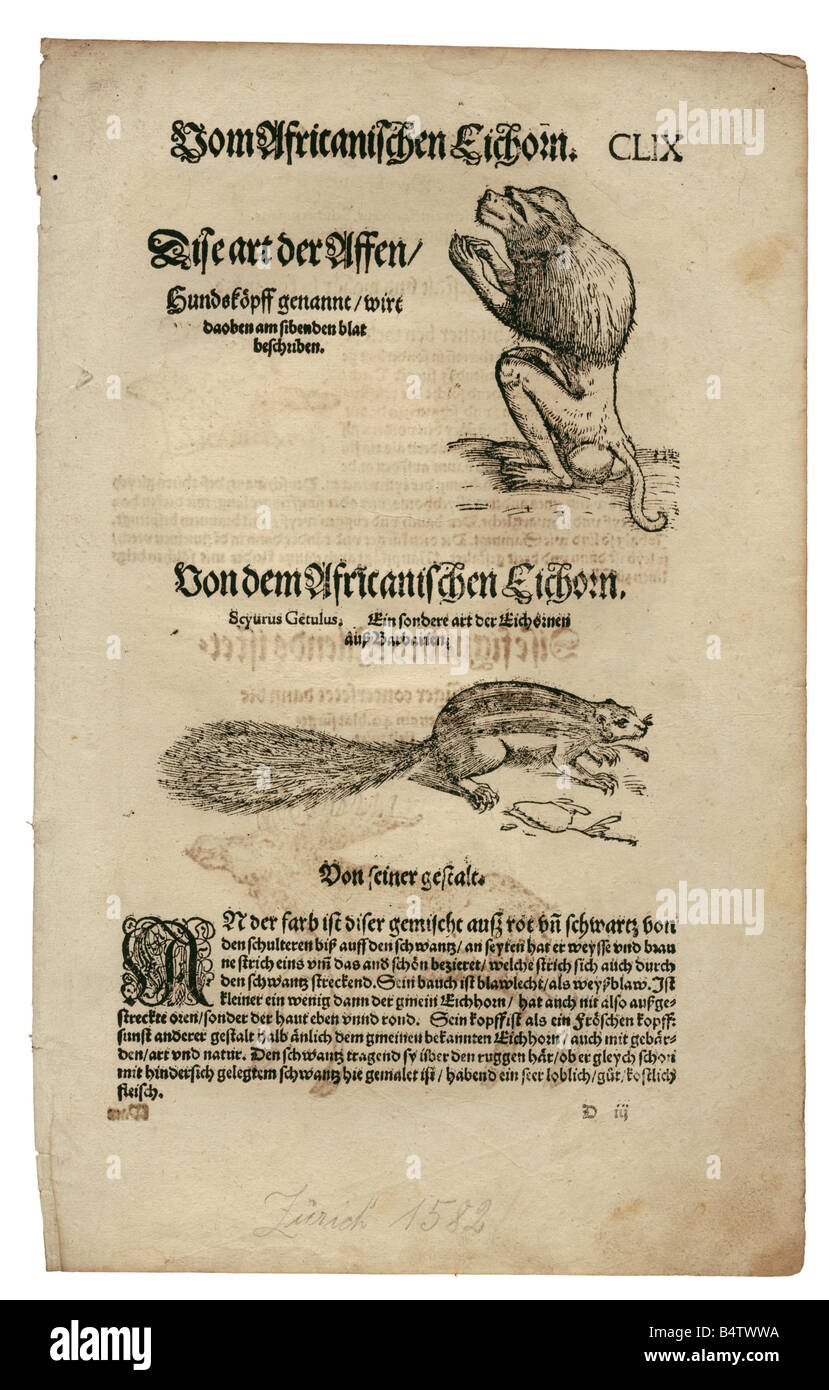 Vom Africanischen Eichorn. CLIX
Dise art der Affen/
Hundsköpff genannt/wirt
daoben am sibenden blat
beschriben.
Von dem Africanischen Eichorn.
Scyurus Getulus. Ein sondere art der Eichornen
auß Barbarien.
Von seiner gestalt.
AN der farb ist diser gemischt auß rot vñ schwartz von
den schulteren biß auff den schwantz/an seyten hat er weysse vnd brau
ne strich eins vm̃ das and schön bezieret/welche strich sich auch durch
den schwantz streckend. Sein bauch ist blawlecht/als weyßblaw. Ist
kleiner ein wenig dann der gmein Eichhorn/ hat auch nit also außge-
streckte oren/sonder der haut eben vnnd rond. Sein kopff ist als ein Fröschen kopff:
sunst anderer gestalt halb änlich dem gmeinen bekannten Eichhorn/auch mit gebär-
den/art vnd natur. Den schwantz tragend sy über den ruggen här/ob er gleych schon
mit hindersich gelegtem schwantz hie gemalet ist/ habend ein seer loblich/gůt/kostlich
fleisch.
D iij
Zürich 1582
alamy
Image ID: B4TWWA
www.alamy.com